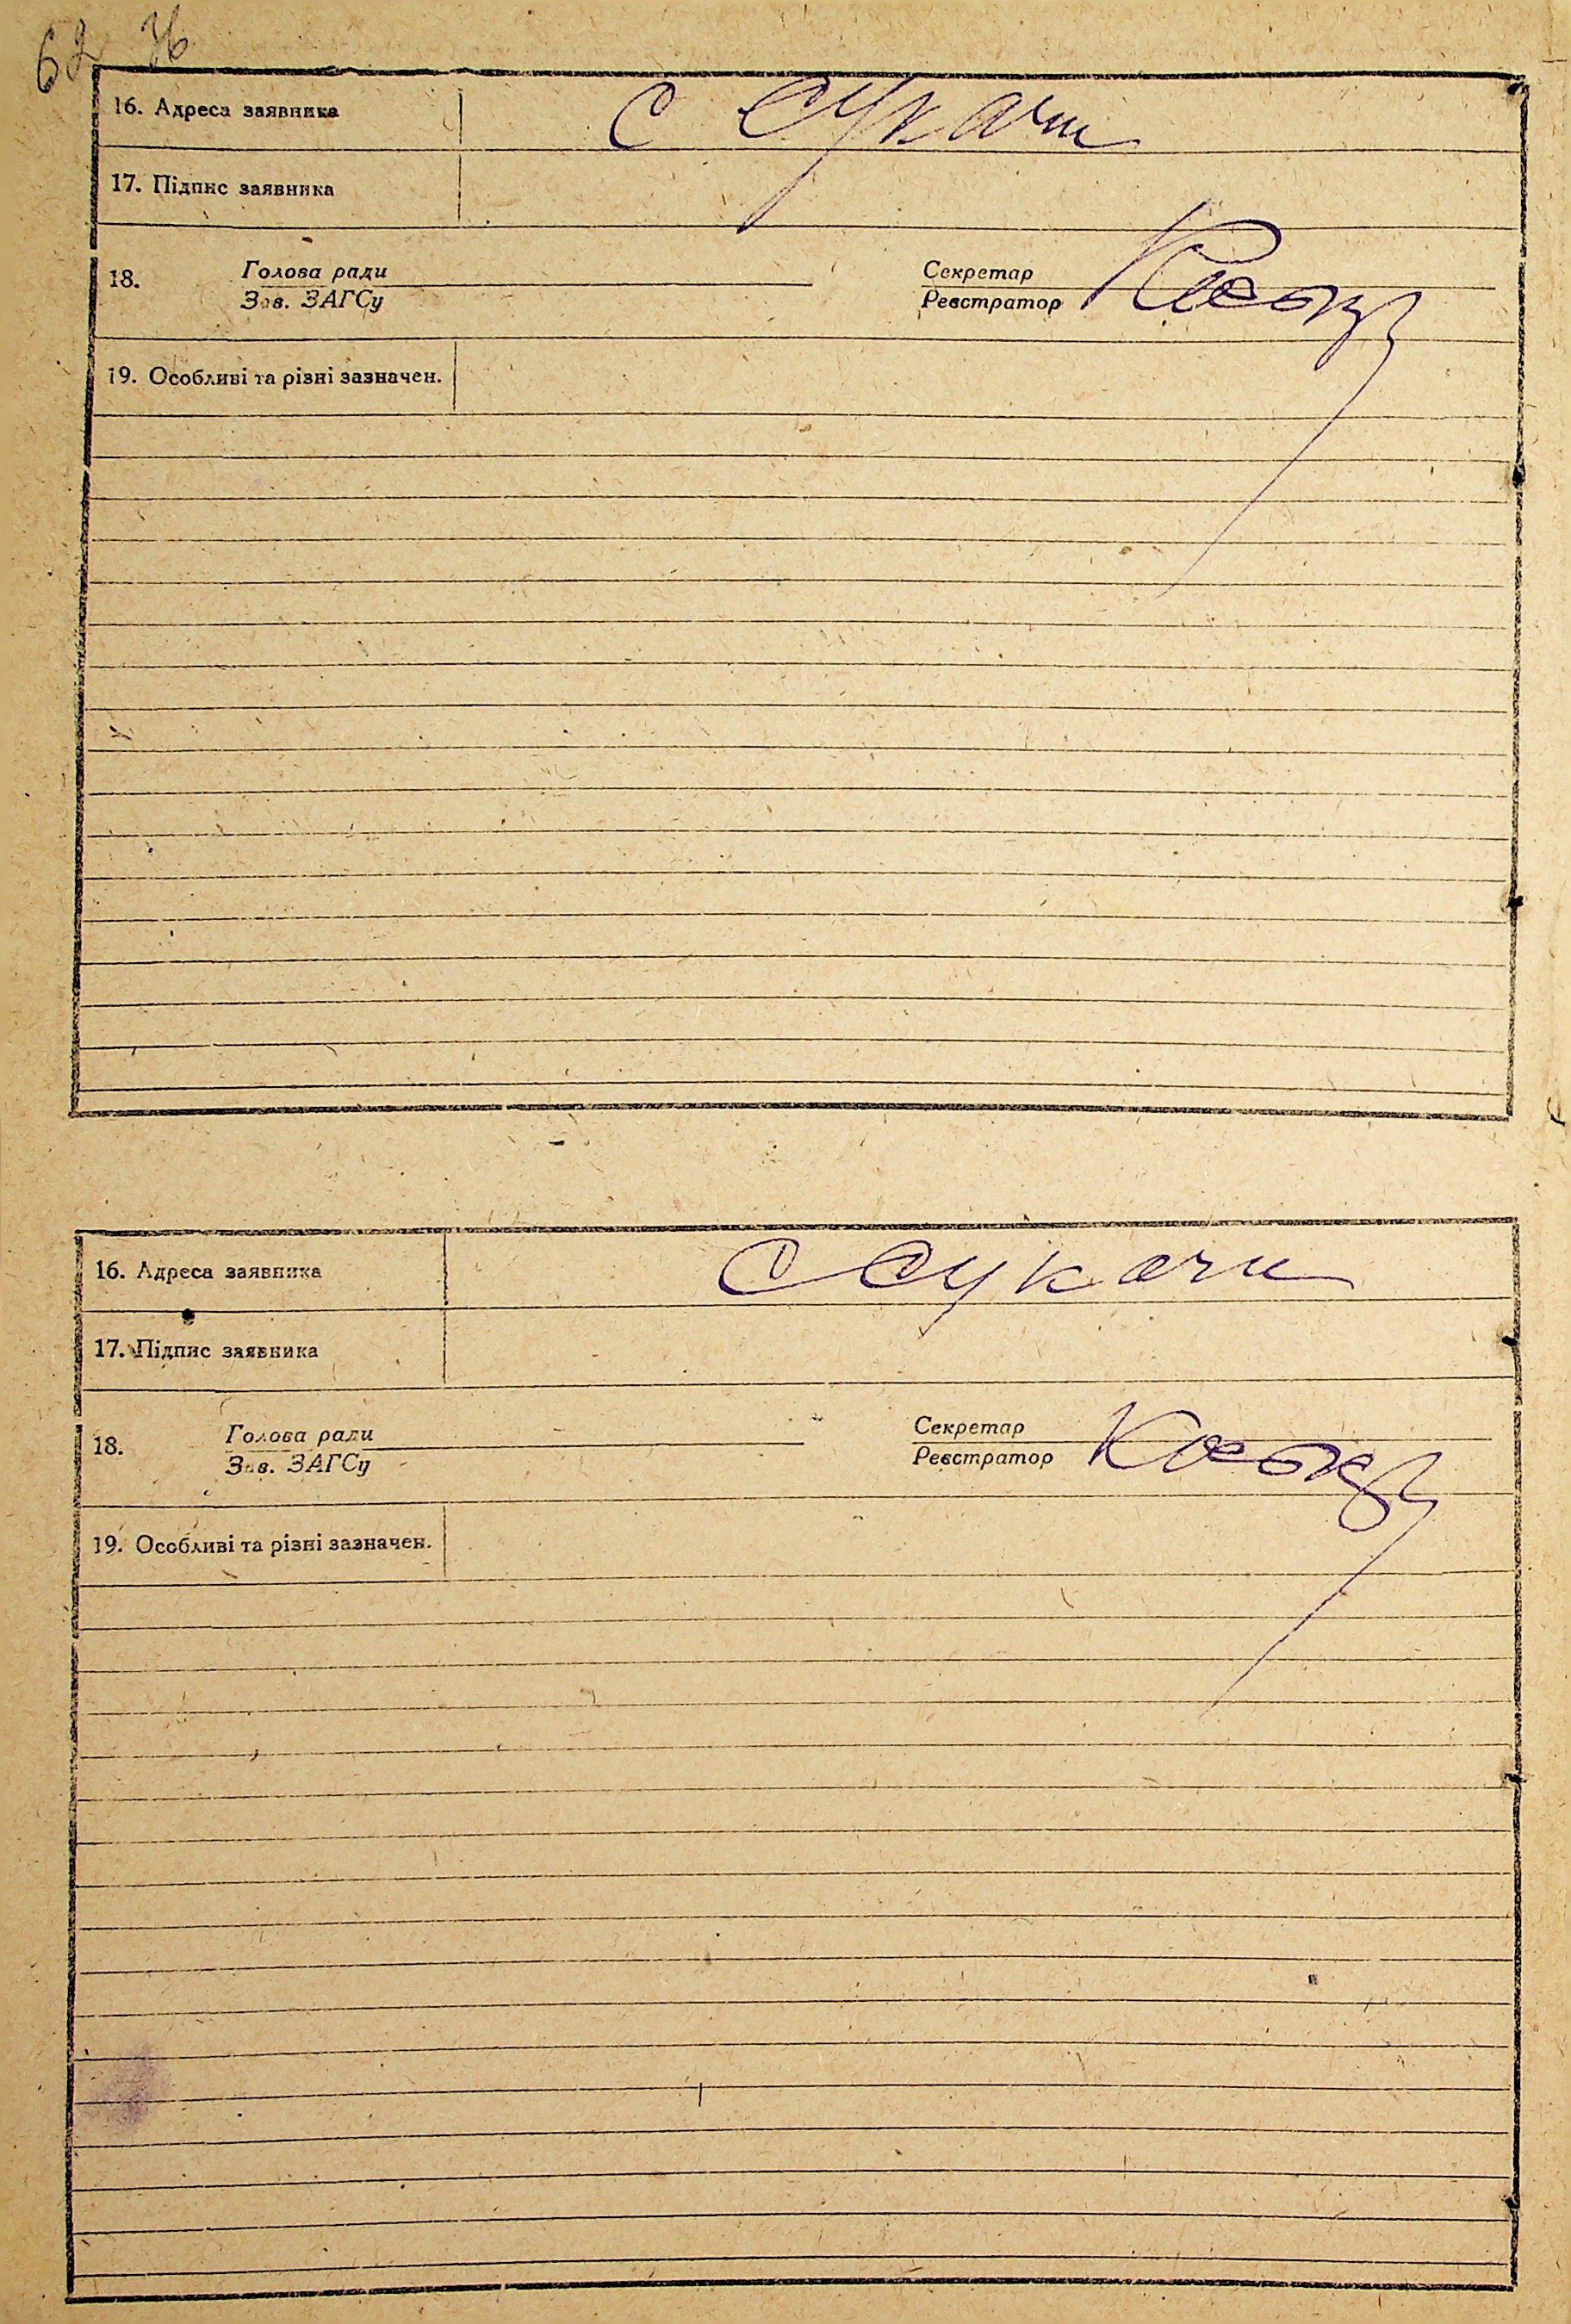 62 36
16. Адреса заявника с Сукачи
17. Підпис заявника
18. Голова ради Секретар
Зав. ЗАГСу Реєстратор
19. Особливі та різні зазначен.
16. Адреса заявника с Сукачи
17. Підпис заявника
18. Голова ради Секретар
Зав. ЗАГСу Реєстратор
19. Особливі та різні зазначен.